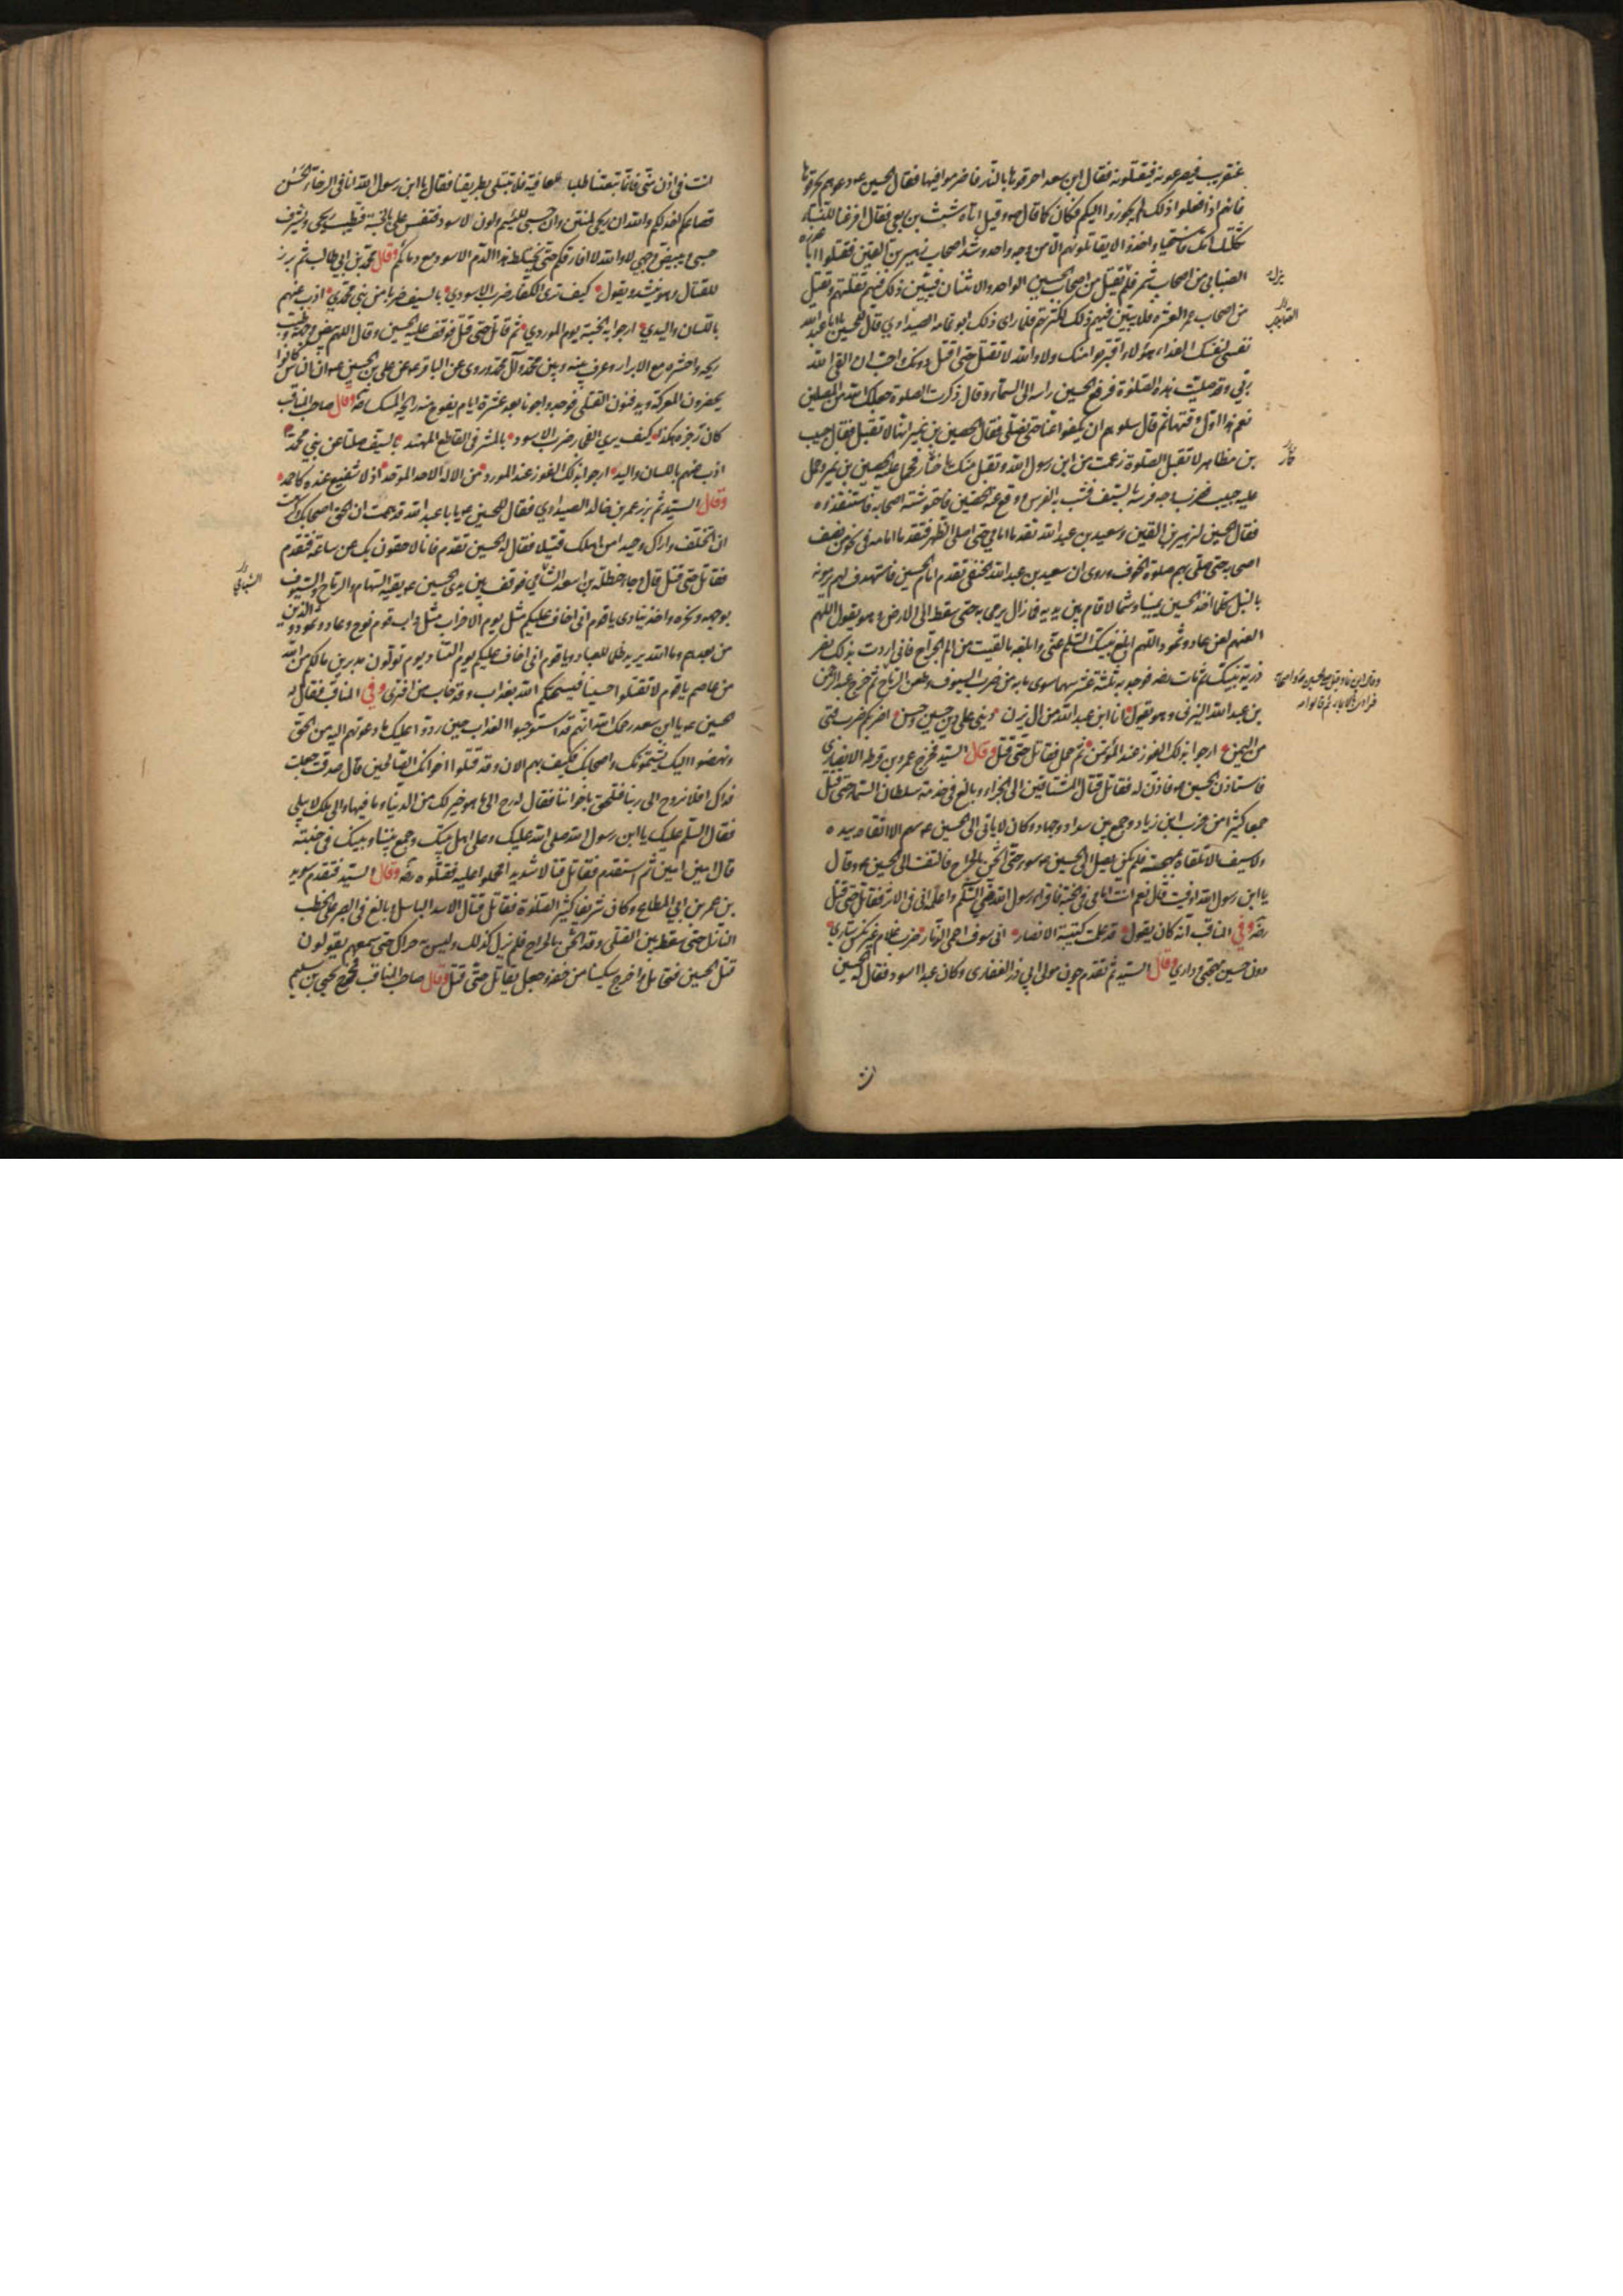 عن قريب فيصرعونه فيقتلونه فقال ابن سعد احرقوها بالنار فاضرموا فيها فقال الحسين ع دعوهم يحرقوها
فانهم اذا فعلوا ذلك لم يجوزوا اليكم فكان كما قال ص وقيل اتاه شبث بن ربعي فقال افزعنا النساء
ثكلتك امك فاستحيا واخذوا لا يقاتلونهم الا من وجه واحد وشد اصحاب زهير بن القين فقتلوا ابا عذرة
الضبابي من اصحاب شمر فلم يزل يقتل من اصحاب الحسين الواحد والاثنان فيبين ذلك فيهم لقلتهم ويقتل
من اصحاب عمر العشرة فلا يبين فيهم ذلك لكثرتهم فلما راى ذلك ابو ثمامه الصيداوي قال للحسين يا ابا عبد الله
نفسي لنفسك الفداء هؤلاء اقتربوا منك ولا والله لا تقتل حتى اقتل دونك واحب ان القى الله
ربي وقد صليت هذه الصلوة فرفع الحسين راسه الى السماء وقال ذكرت الصلوة جعلك الله من المصلين
نعم هذا اول وقتها ثم قال سلوهم ان يكفوا عنا حتى نصلي فقال الحصين بن نمير انها لا تقبل فقال حبيب
بن مظاهر لا تقبل الصلوة زعمت من ابن رسول الله وتقبل منك يا ختار فحمل عليه حصين بن نمير وحمل
عليه حبيب فضرب وجه فرسه بالسيف فشب به الفرس ووقع عنه الحصين فاحتوشته اصحابه فاستنقذوه
فقال الحسين لزهير بن القين وسعيد بن عبد الله تقدما امامي حتى اصلي الظهر فتقدما امامه في نحو من نصف
اصحابه حتى صلى بهم صلوة الخوف وروى ان سعيد بن عبد الله الحنفي تقدم امام الحسين فاستهدف لهم يرمونه
بالنبل كلما اخذ الحسين يمينا وشمالا قام بين يديه فما زال يرمى به حتى سقط الى الارض وهو يقول اللهم
العنهم لعن عاد وثمود اللهم ابلغ نبيك السلم عني وابلغه ما لقيت من الم الجراح فاني اردت بذلك نصر
ذرية نبيك ثم مات رضه فوجد به ثلثة عشر سهما سوى ما به من ضرب السيوف وطعن الرماح ثم خرج عبد الرحمن
بن عبد الله اليزني وهو يقول انا ابن عبد الله من ال يزن ديني على دين حسين وحسن اضربكم ضرب فتى
من اليمن ارجو بذاك الفوز عند المؤتمن ثم حمل فقاتل حتى قتل وقال السيد فخرج عمرو بن قرظه الانصاري
فاستاذن الحسين ع فاذن له فقاتل قتال المشتاقين الى الجزاء وبالغ في خدمة سلطان السماء حتى قتل
جمعا كثيرا من حزب ابن زياد وجمع بين سداد وجهاد وكان لا ياتي الى الحسين ع سهم الا اتقاه بيده
ولا سيف الا تلقاه بمهجته فلم يكن يصل الى الحسين ع سوء حتى اثخن بالجراح فالتفت الى الحسين ع وقال
يا ابن رسول الله اوفيت قال نعم انت امامي في الجنة فاقرا رسول الله مني السلم واعلمه اني في الاثر فقاتل حتى قتل
رضه وفي المناقب انه كان يقول قد علمت كتيبة الانصار اني سوف احمي الذمار ضرب غلام غير نكس شاري
دون حسين مهجتي وداري وقال السيد ثم تقدم جون مولى ابي ذر الغفاري وكان عبدا اسود فقال له الحسين
انت
انت في اذن مني فانما تبعتنا طلبا للعافية فلا تبتلي بطريقنا فقال يا ابن رسول الله انا في الرخاء الحس
قصاعكم اخذلكم والله ان ريحي لمنتن وان حسبي للئيم ولون الاسود فتنفس علي بالجنة فتطيب ريحي ويشرف
حسبي ويبيض وجهي لا والله لا افارقكم حتى يختلط هذا الدم الاسود مع دمائكم وقال محمد بن ابي طالب ثم برز
للقتال وهو ينشد ويقول كيف ترى الكفار ضرب الاسودي بالسيف ضربا عن بني محمدي اذب عنهم
باللسان واليدي ارجو به الجنة يوم الموردي ثم قاتل حتى قتل فوقف عليه الحسين وقال اللهم بيض وجهه وطيب
ريحه واحشره مع الابرار وعرف بينه وبين محمد وآل محمد وروى عن الباقر ع عن علي بن الحسين ع ان الناس كانوا
يحضرون المعركة ويدفنون القتلى فوجدوا جونا بعد عشرة ايام يفوح منه رايحة المسك رضه وقال صاحب المناقب
كان رجزه هكذا كيف يرى الفجار ضرب الاسود بالمشرفي القاطع المهند بالسيف صلتا عن بني محمد
اذب عنهم باللسان واليد ارجو بذاك الفوز عند المورد من الاله الاحد الموحد اذ لا شفيع عنده كاحمد
وقال السيد ثم برز عمر بن خالد الصيداوي فقال للحسين ع يا با عبد الله قد هممت ان الحق اصحابك وكرهت
ان اتخلف واراك وحيدا من اهلك قتيلا فقال له الحسين تقدم فانا لاحقون بك عن ساعة فتقدم
فقاتل حتى قتل قال وجاء حنظلة بن اسعد الشامي فوقف بين يدي الحسين ع يقيه السهام والرماح والسيوف
بوجهه ونحره واخذ ينادي يا قوم اني اخاف عليكم مثل يوم الاحزاب مثل داب قوم نوح وعاد وثمود والذين
من بعدهم وما الله يريد ظلما للعباد ويا قوم اني اخاف عليكم يوم التناد يوم تولون مدبرين ما لكم من الله
من عاصم يا قوم لا تقتلوا حسينا فيسحتكم الله بعذاب وقد خاب من افترى وفي المناقب فقال له
الحسين ع يا ابن سعد رحمك الله انهم قد استوجبوا العذاب حين ردوا عليك ما دعوتهم اليه من الحق
ونهضوا اليك يشتمونك واصحابك فكيف بهم الان وقد قتلوا اخوانك الصالحين قال صدقت جعلت
فداك افلا نروح الى ربنا فنلحق باخواننا فقال له رح الى ما هو خير لك من الدنيا وما فيها والى ملك لا يبلى
فقال السلم عليك يا ابن رسول الله صلى الله عليك وعلى اهل بيتك وجمع بيننا وبينك في جنته
قال امين امين ثم استقدم فقاتل قتالا شديدا فحملوا عليه فقتلوه رضه وقال السيد فتقدم سويد
بن عمر بن ابي المطاع وكان شريفا كثير الصلوة فقاتل قتال الاسد الباسل وبالغ في الصبر على الخطب
النازل حتى سقط بين القتلى وقد اثخن بالجراح فلم يزل كذلك وليس به حراك حتى سمعهم يقولون
قتل الحسين فتحامل واخرج سكينا من خفه وجعل يقاتل حتى قتل وقال صاحب المناقب فخرج يحيى بن سليم